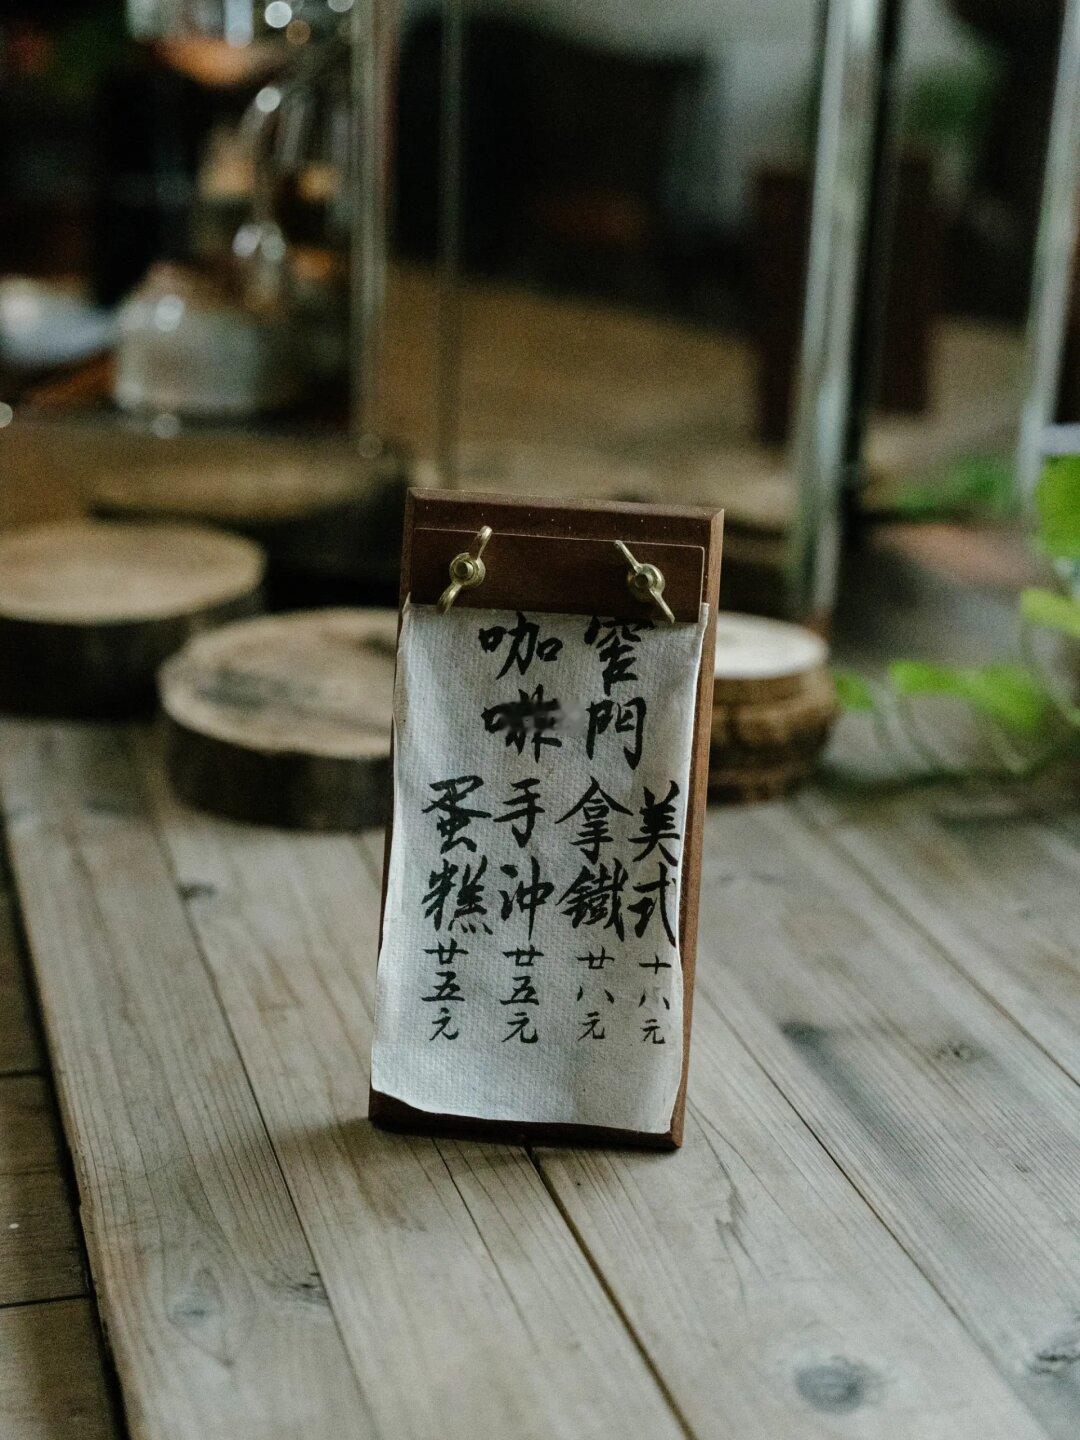 窄門
咖
美式十八元
拿鐵廿八元
手沖廿五元
蛋糕廿五元